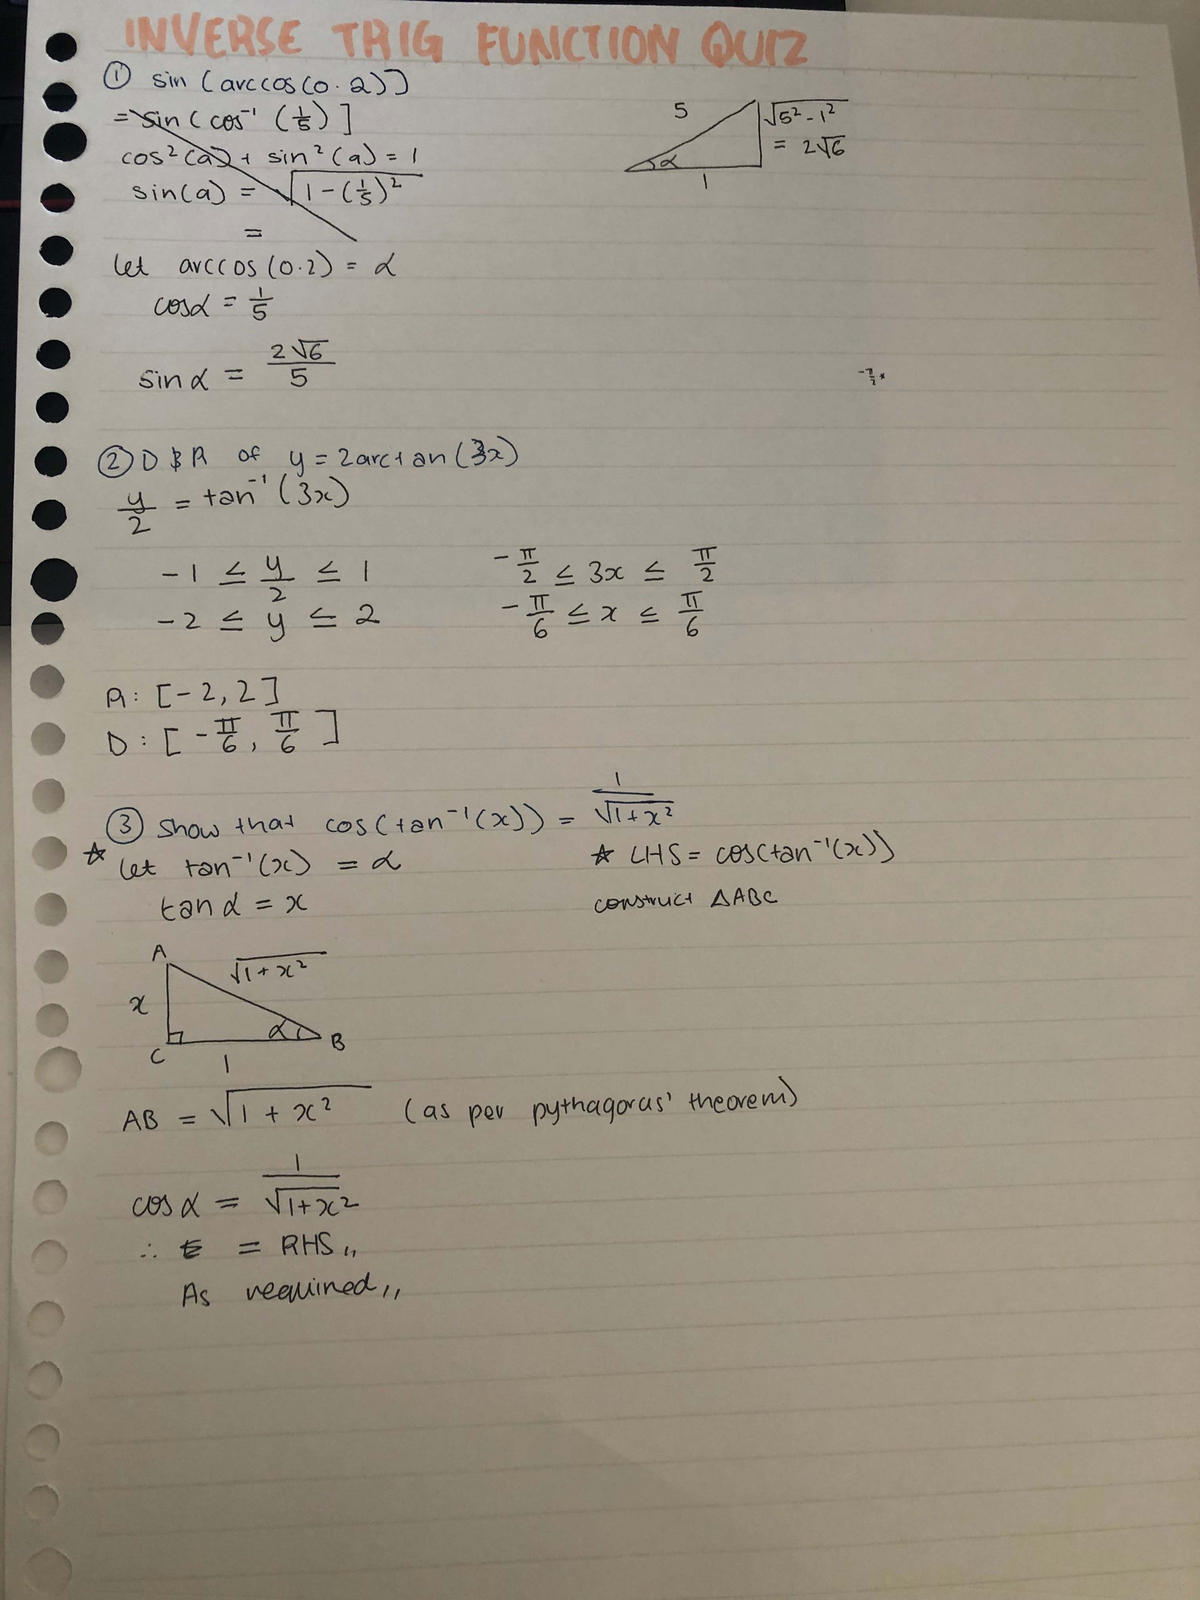 INVERSE TRIG FUNCTION QUIZ
① sin (arccos(0.2)]
= sin ( cos⁻¹ (1/5) ]
cos²(a) + sin²(a) = 1
sin(a) = √(1-(1/5)²)
=
5
√(5²-1²)
= 2√6
α
1
let arccos(0.2) = α
cosα = 1/5
sinα = 2√6/5
② D & R of y = 2arctan(3x)
y/2 = tan⁻¹(3x)
-1 ≤ y/2 ≤ 1 -π/2 ≤ 3x ≤ π/2
-2 ≤ y ≤ 2 -π/6 ≤ x ≤ π/6
R: [-2, 2]
D: [-π/6, π/6 ]
③ Show that cos(tan⁻¹(x)) = 1/√(1+x²)
☆ let tan⁻¹(x) = α ☆ LHS = cos(tan⁻¹(x))
tanα = x construct △ABC
A
√(1+x²)
x
α
C B
1
AB = √(1+x²) (as per pythagoras' theorem)
cosα = 1/√(1+x²)
∴ = RHS,,
As required,,